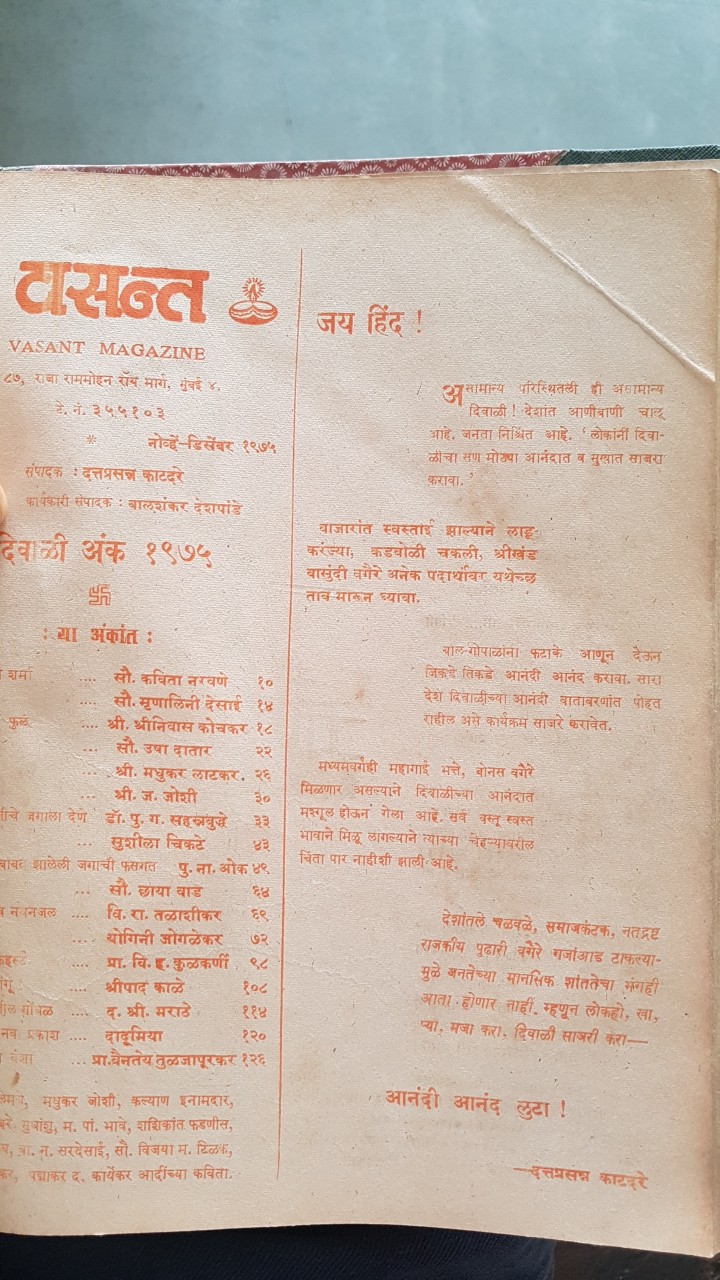 वसन्त
VASANT MAGAZINE
८७, राजा राममोहन रॉय मार्ग, मुंबई ४.
टे. नं. ३५५१०३
*
नोव्हें-डिसेंबर १९७५
संपादक : दत्तप्रसन्न काटदरे
कार्यकारी संपादक : बाळशंकर देशपांडे
दिवाळी अंक १९७५
卐
: या अंकांत :
शर्मा .... सौ. कविता नरवणे १०
.... सौ. मृणालिनी देसाई १४
फुलं ... श्री. श्रीनिवास कोचकर १८
... सौ. उषा दातार २२
... श्री. मधुकर लाटकर. २६
... श्री. ज. जोशी ३०
जगाला देणे डॉ. पु. ग. सहस्रबुद्धे ३३
... सुशीला चिकटे ४३
झालेली जगाची फसगत पु. ना. ओक ४९
... सौ. छाया वाड ६४
नवनजल .... वि. रा. तळाशीकर ६९
योगिनी जोगळेकर ७२
.... प्रा. वि. ह. कुळकर्णी ९८
.... श्रीपाद काळे १०८
.... द. श्री. मराठे ११४
नवा प्रकाश .... दादूमिया १२०
.... प्रा. वैनतेय तुळजापूरकर १२६
मधुकर जोशी, कल्याण इनामदार,
सुधांशु, म. पां. भावे, शशिकांत फडणीस,
वा. न. सरदेसाई, सौ. विजया म. टिळक,
पद्माकर द. कार्येकर आदींच्या कविता.
जय हिंद !
असामान्य परिस्थितली ही असामान्य
दिवाळी ! देशांत आणीबाणी चालू
आहे. जनता निश्चित आहे. ' लोकांनीं दिवा-
ळीचा सण मोठ्या आनंदात व सुखात साजरा
करावा. '
बाजारांत स्वस्ताई झाल्याने लाडू
करंज्या, कडबोळी चकली, श्रीखंड
बासुंदी वगैरे अनेक पदार्थांवर यथेच्छ
ताव मारून घ्यावा.
बाल-गोपाळांना फटाके आणून देऊन
जिकडे तिकडे आनंदी आनंद करावा. सारा
देश दिवाळीच्या आनंदी वातावरणांत पोहत
राहील असे कार्यक्रम साजरे करावेत.
मध्यमवर्गही महागाई भत्ते, बोनस वगैरे
मिळणार असल्याने दिवाळीच्या आनंदात
मश्गूल होऊन गेला आहे. सर्व वस्तू स्वस्त
भावाने मिळू लागल्याने त्याच्या चेहऱ्यावरील
चिंता पार नाहीशी झाली आहे.
देशांतले चळवळे, समाजकंटक, नतद्रष्ट
राजकीय पुढारी वगैरे गजांआड टाकल्या-
मुळे जनतेच्या मानसिक शांततेचा भंगही
आता होणार नाही. म्हणून लोकहो, खा,
प्या, मजा करा. दिवाळी साजरी करा—
आनंदी आनंद लुटा !
—दत्तप्रसन्न काटदरे